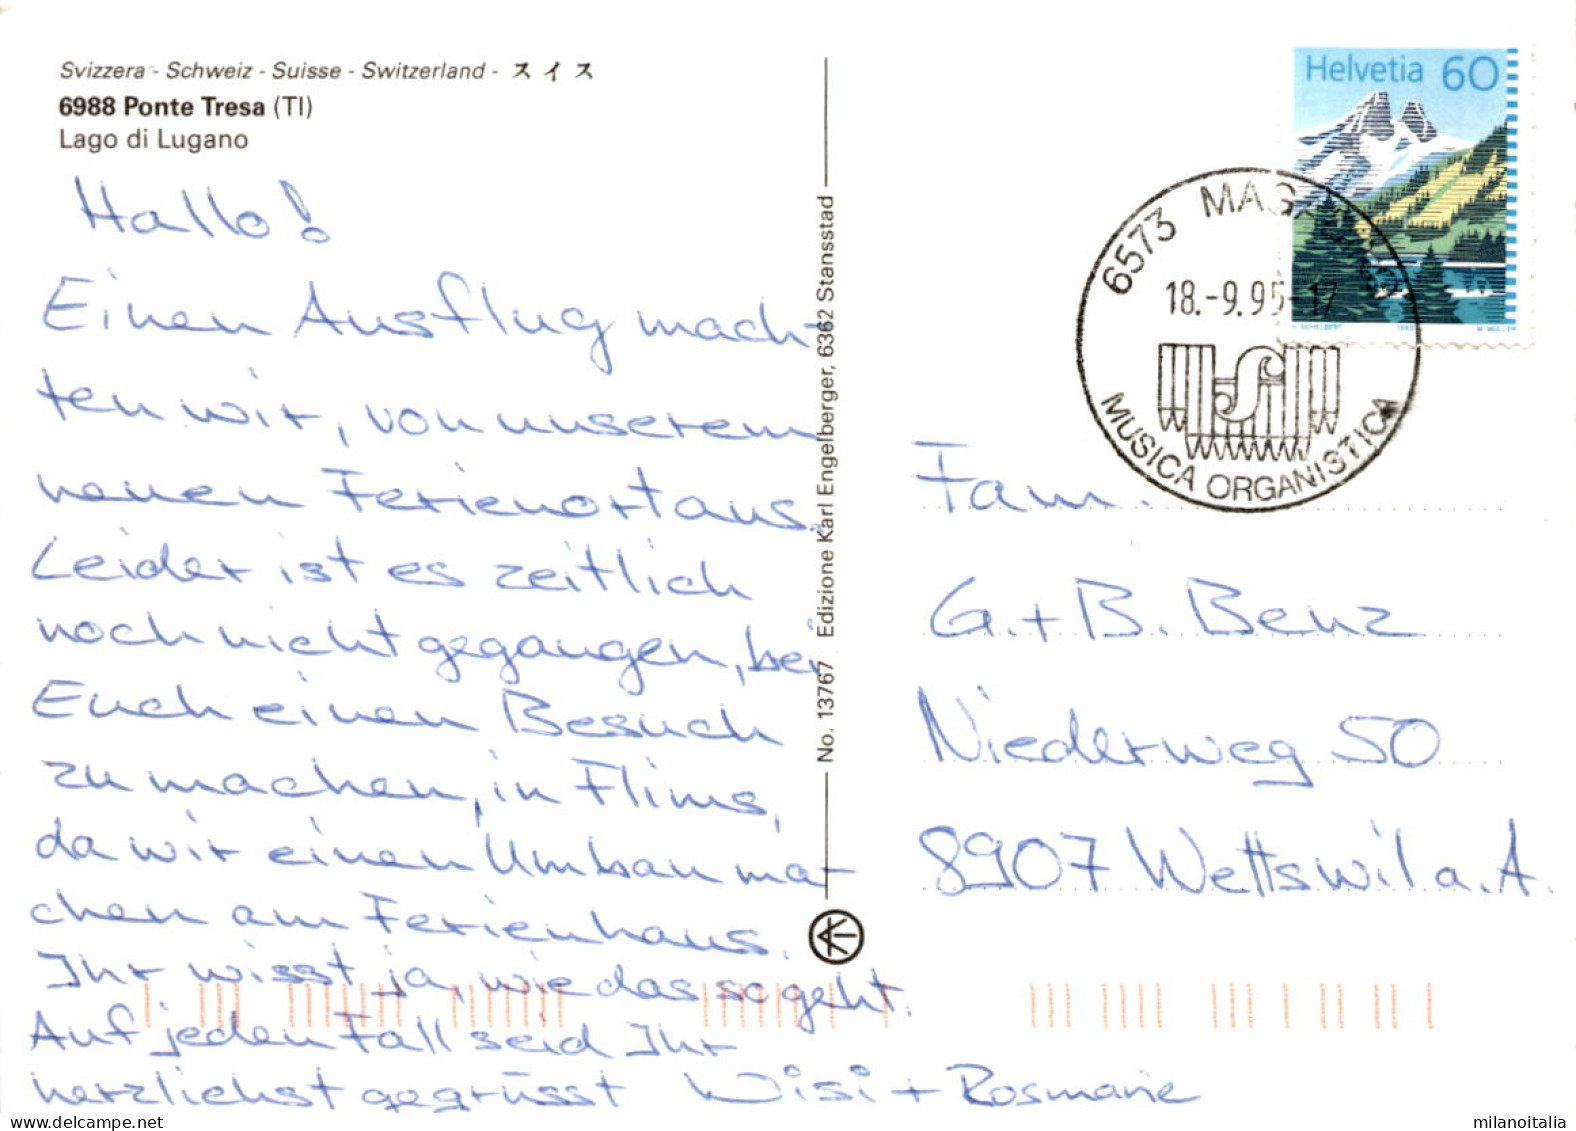 Svizzera - Schweiz - Suisse - Switzerland - スイス
6988 Ponte Tresa (TI)
Lago di Lugano
Hallo!
Einen Ausflug mach-
ten wir, von unserem
neuen Ferienort aus.
Leider ist es zeitlich
noch nicht gegangen, bei
Euch einen Besuch
zu machen, in Flims,
da wir einen Umbau ma-
chen am Ferienhaus.
Ihr wisst ja, wie das so geht.
Auf jeden Fall seid Ihr
herzlichst gegrüsst Wisi + Rosmarie
No. 13767 Edizione Karl Engelberger, 6362 Stansstad
Helvetia 60
H. SCHELBERT 1993 M. MÜLLER
6573 MAGADINO
18.-9.95-17
MUSICA ORGANISTICA
Fam.
G. + B. Benz
Niederweg 50
8907 Wettswil a. A.
milanoitalia